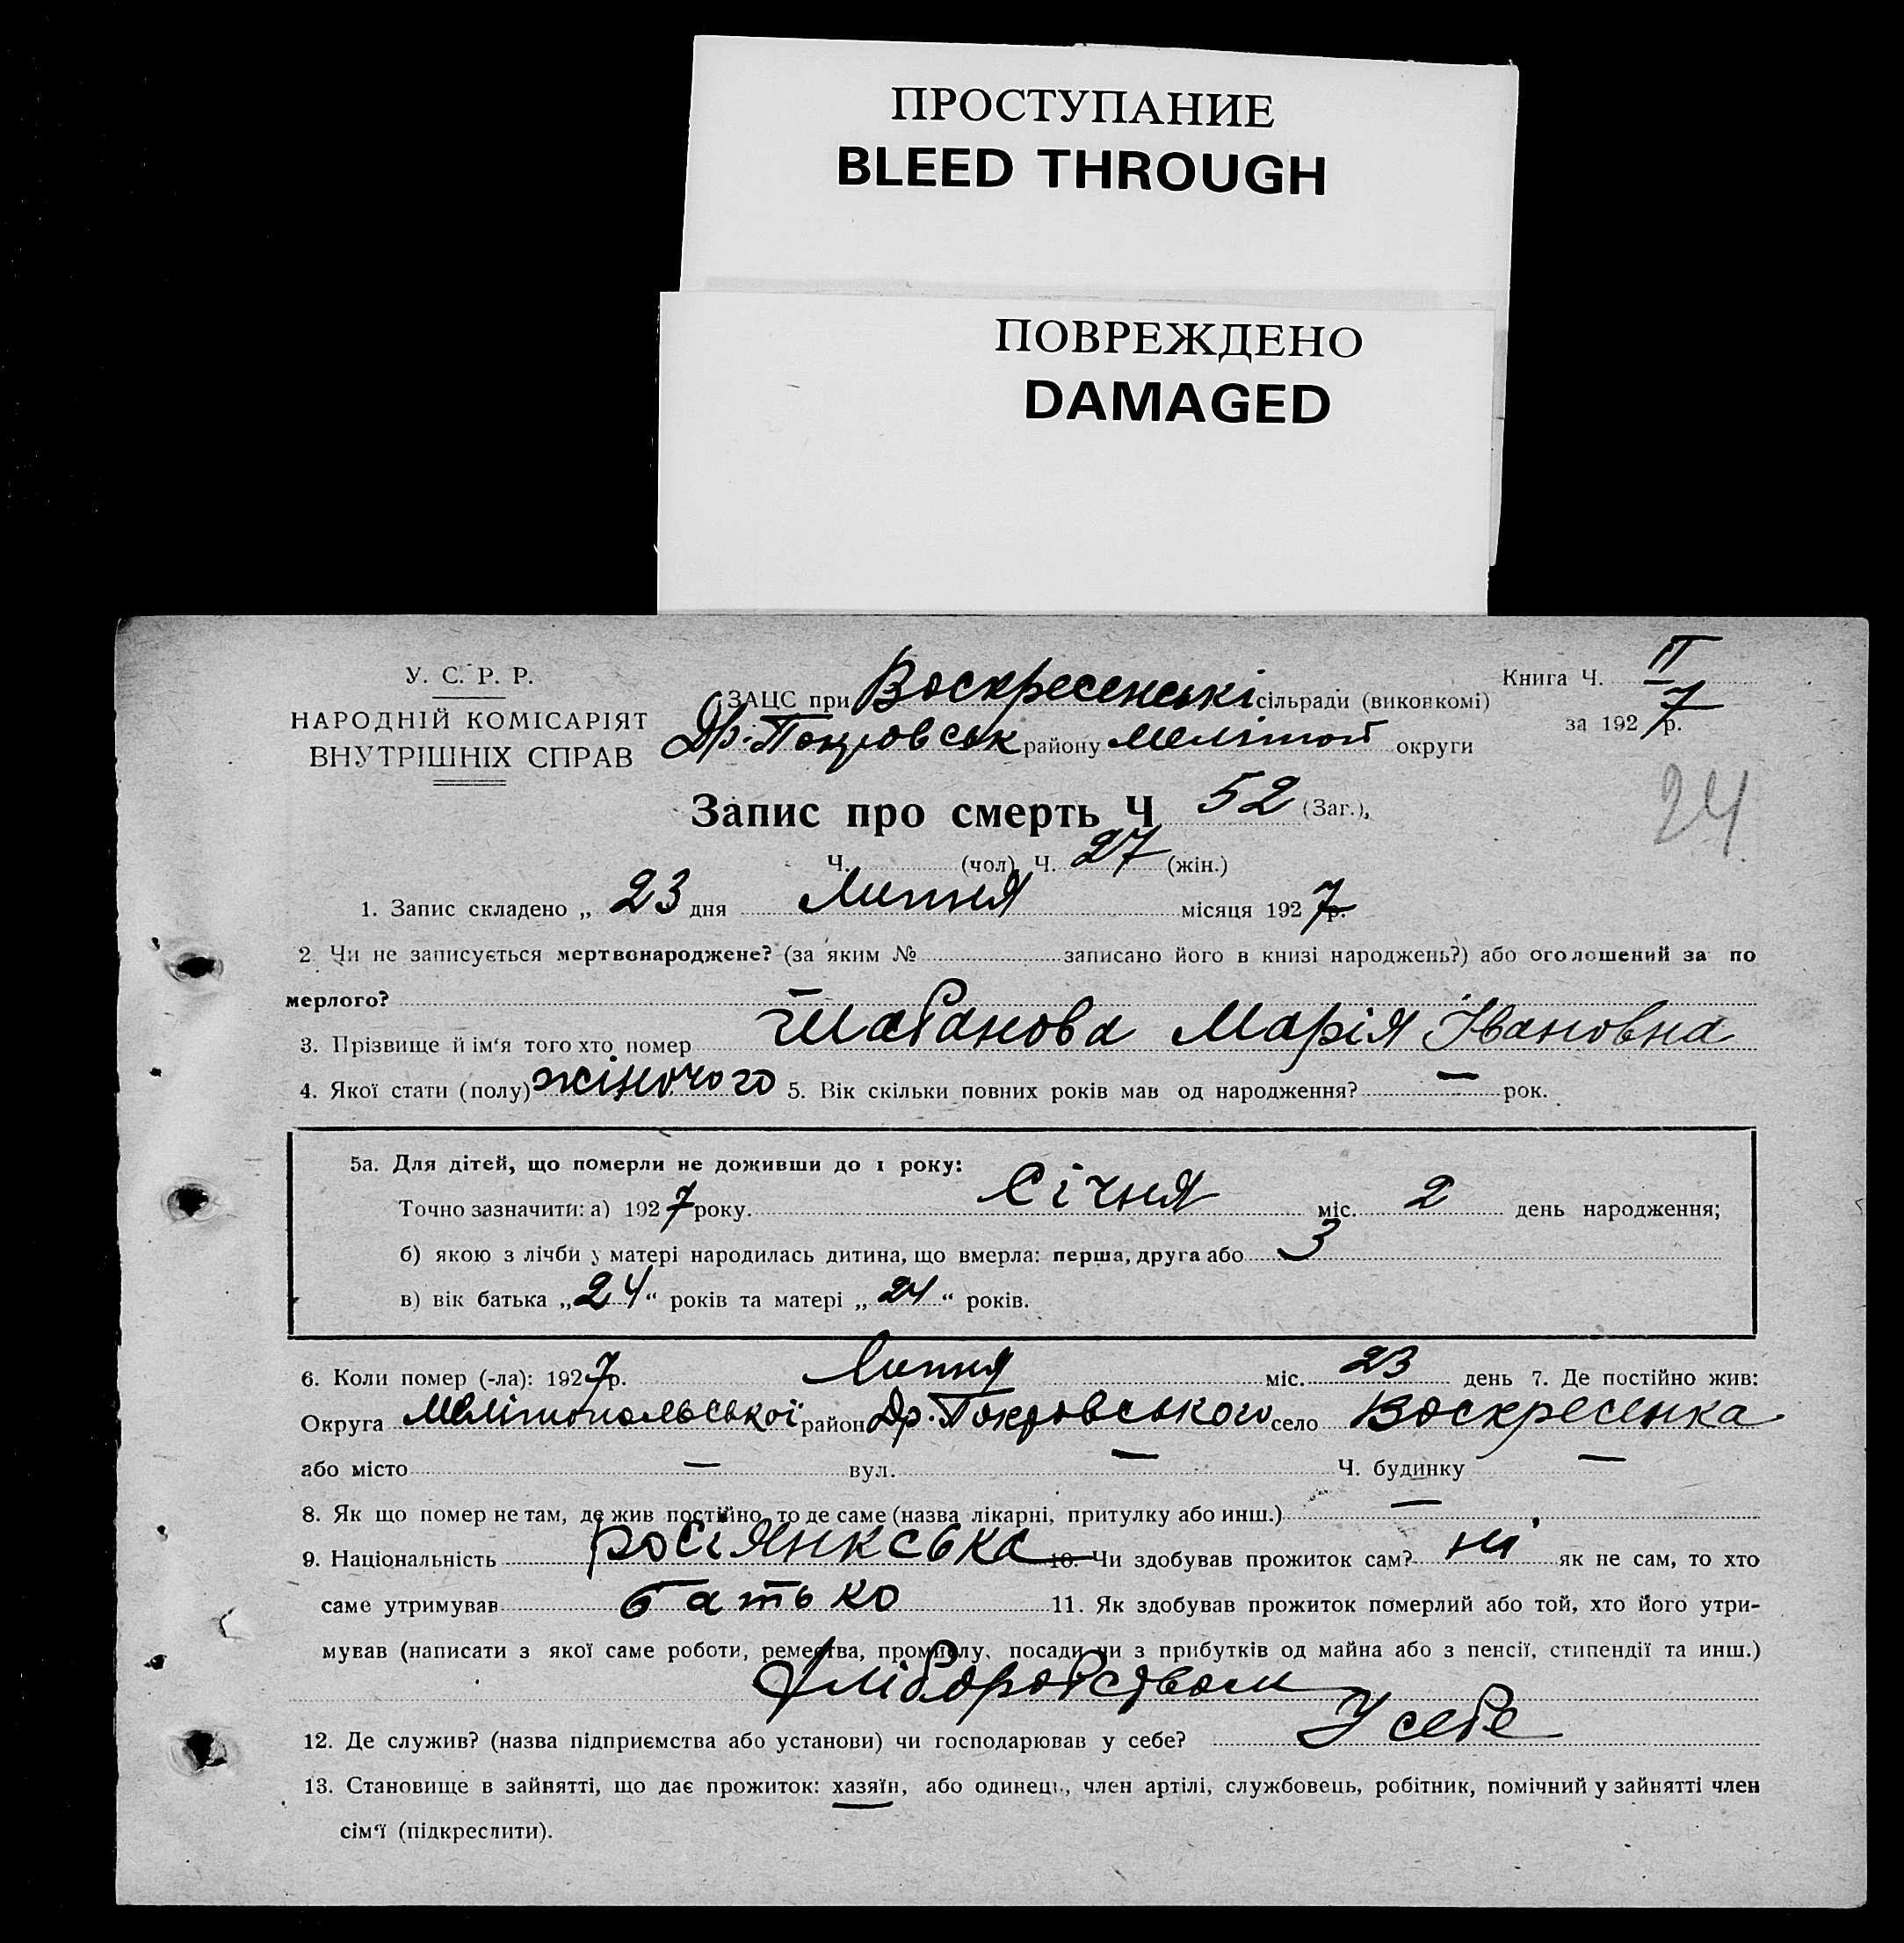 ПРОСТУПАНИЕ
BLEED THROUGH
ПОВРЕЖДЕНО
DAMAGED
У. С. Р. Р.
НАРОДНІЙ КОМІСАРІЯТ
ВНУТРІШНІХ СПРАВ
ЗАЦС при Воскресенські сільради (виконкомі)
Др.-Покровськ району Мелітоп округи
Книга Ч. II
за 1927 р.
24
Запис про смерть Ч 52 (Заг.),
Ч. (чол) Ч. 27 (жін.)
1. Запис складено „ 23 дня Липня місяця 1927 р.
2. Чи не записується мертвонароджене? (за яким № записано його в книзі народжень?) або оголошений за по
мерлого?
3. Прізвище й ім‘я того хто помер Шабанова Марія Івановна
4. Якої стати (полу) жіночого 5. Вік скільки повних років мав од народження? — рок.
5а. Для дітей, що померли не доживши до 1 року:
Точно зазначити: а) 1927 року. Січня міс. 2 день народження;
б) якою з лічби у матері народилась дитина, що вмерла: перша, друга або 3
в) вік батька „24“ років та матері „24“ років.
6. Коли помер (-ла): 1927р. Липня міс. 23 день 7. Де постійно жив:
Округа Мелітопольської район Др.-Покровського село Воскресенка
або місто — вул. — Ч. будинку —
8. Як що помер не там, де жив постійно, то де саме (назва лікарні, притулку або инш.) —
9. Національність росіянкська 10. Чи здобував прожиток сам? ні як не сам, то хто
саме утримував батько 11. Як здобував прожиток померлий або той, хто його утри-
мував (написати з якої саме роботи, ремества, промислу, посади чи з прибутків од майна або з пенсії, стипендії та инш.)
Хліборобством
12. Де служив? (назва підприємства або установи) чи господарював у себе? У себе
13. Становище в зайнятті, що дає прожиток: хазяїн, або одинець, член артілі, службовець, робітник, помічний у зайнятті член
сім‘ї (підкреслити).